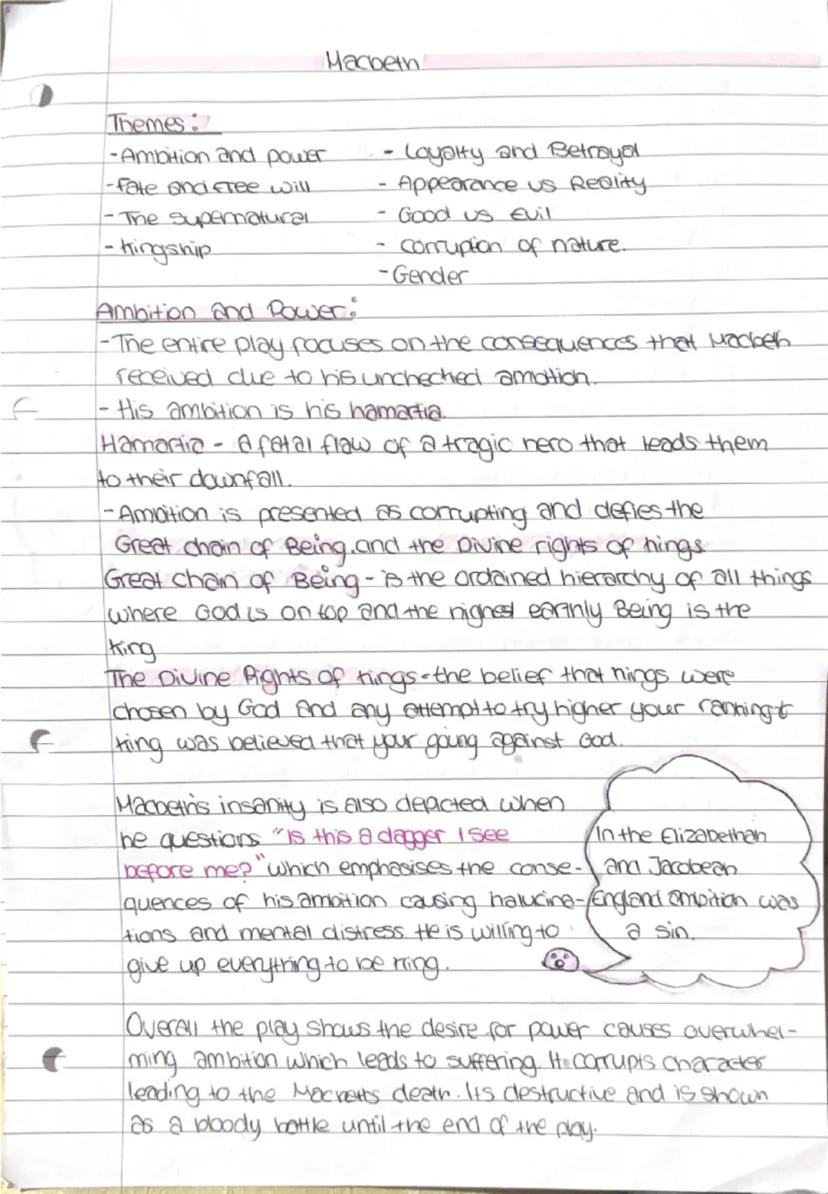 Macbeth
Themes:
- Ambition and power
- Fate and Free will
- The supernatural
- Kingship
- Loyalty and Betrayal
- Appearance vs Reality
- Good vs Evil
- corrupion of nature.
- Gender
Ambition and Power:
- The entire play focuses on the consequences that Macbeth
received due to his unchecked ambition.
- His ambition is his hamartia.
Hamartia - a fatal flaw of a tragic hero that leads them
to their downfall.
- Ambition is presented as corrupting and defies the
Great chain of Being, and the Divine rights of kings
Great Chain of Being - is the ordained hierarchy of all things
where God is on top and the highest earthly Being is the
king
The Divine Rights of kings - the belief that kings were
chosen by God and any attempt to try higher your ranking t
king was believed that your going against God.
Macbeth's insanity is also depicted when
he questions "Is this a dagger I see
before me?" which emphasises the conse-
quences of his ambition causing halucina-
tions and mental distress He is willing to
give up everything to be king.
In the Elizabethan
and Jacobean
England ambition was
a sin.
Overall the play shows the desire for power causes overwhel-
ming ambition which leads to suffering. It corrupts character
leading to the death. Its destructive and is shown
as a bloody battle until the end of the play.